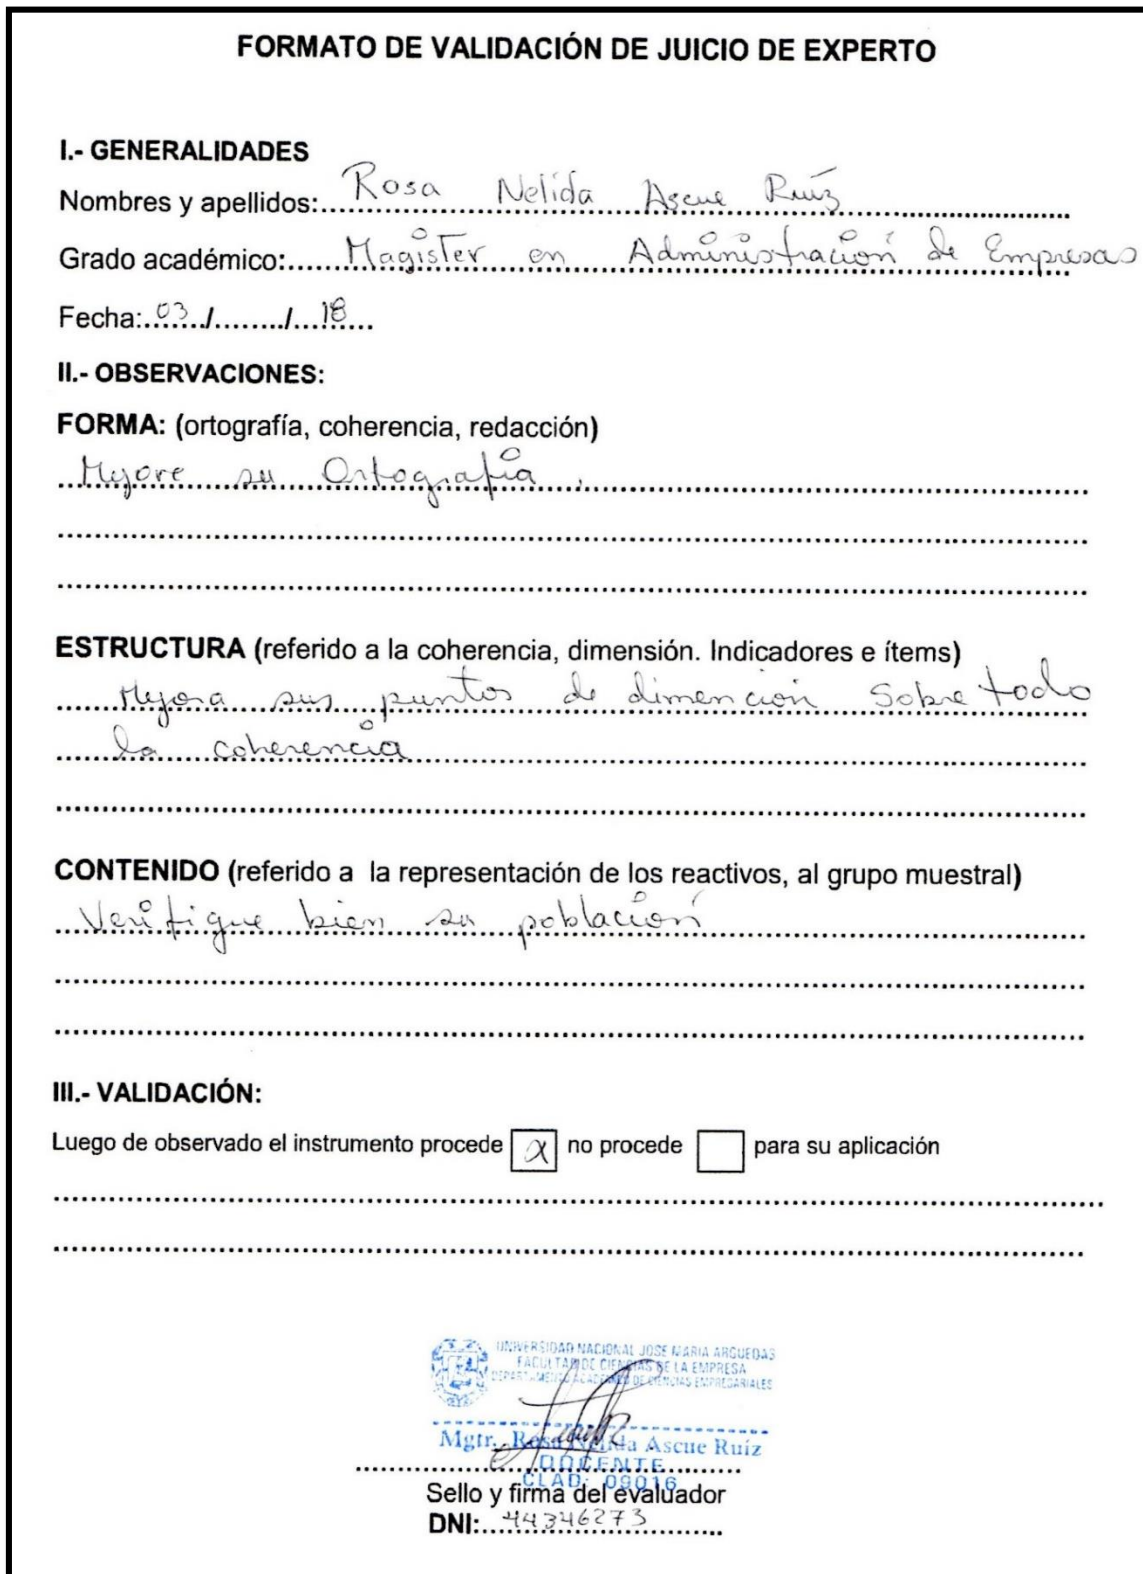 FORMATO DE VALIDACIÓN DE JUICIO DE EXPERTO
I.- GENERALIDADES
Nombres y apellidos: Rosa Nelida Ascue Ruíz
Grado académico: Magister en Administración de Empresas
Fecha: 03 / ........ / 18
II.- OBSERVACIONES:
FORMA: (ortografía, coherencia, redacción)
Mejore su Ortografía.
ESTRUCTURA (referido a la coherencia, dimensión. Indicadores e ítems)
Mejora sus puntos de dimención Sobre todo
la coherencia
CONTENIDO (referido a la representación de los reactivos, al grupo muestral)
Verifique bien su población
III.- VALIDACIÓN:
Luego de observado el instrumento procede x no procede para su aplicación
UNIVERSIDAD NACIONAL JOSE MARIA ARGUEDAS
FACULTAD DE CIENCIAS DE LA EMPRESA
DEPARTAMENTO ACADEMICO DE CIENCIAS EMPRESARIALES
Mgtr. Rosa Nelida Ascue Ruíz
DOCENTE
CLAD: 09016
Sello y firma del evaluador
DNI: 44346273